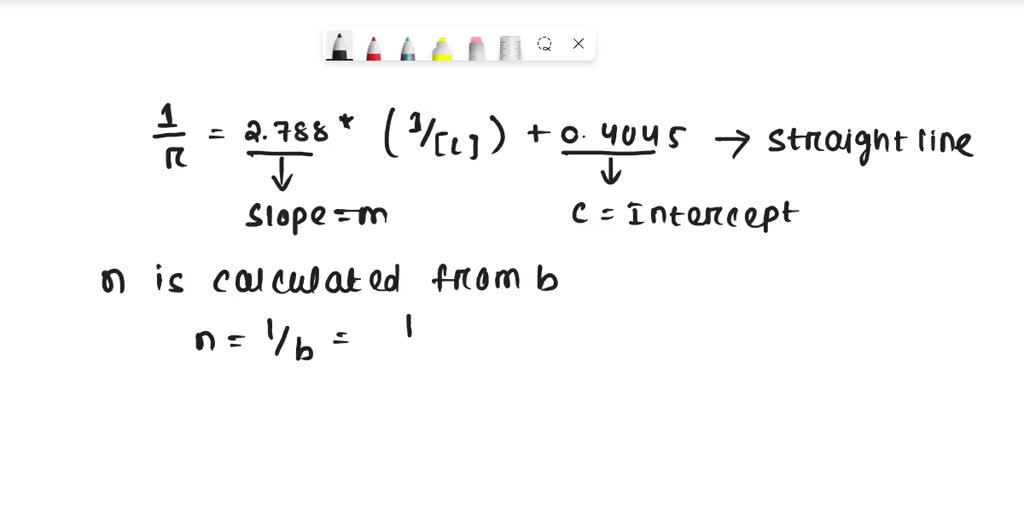 1/r = 2.788 * (1/[L]) + 0.4045 → straight line
slope = m c = Intercept
n is calculated from b
n = 1/b = 1